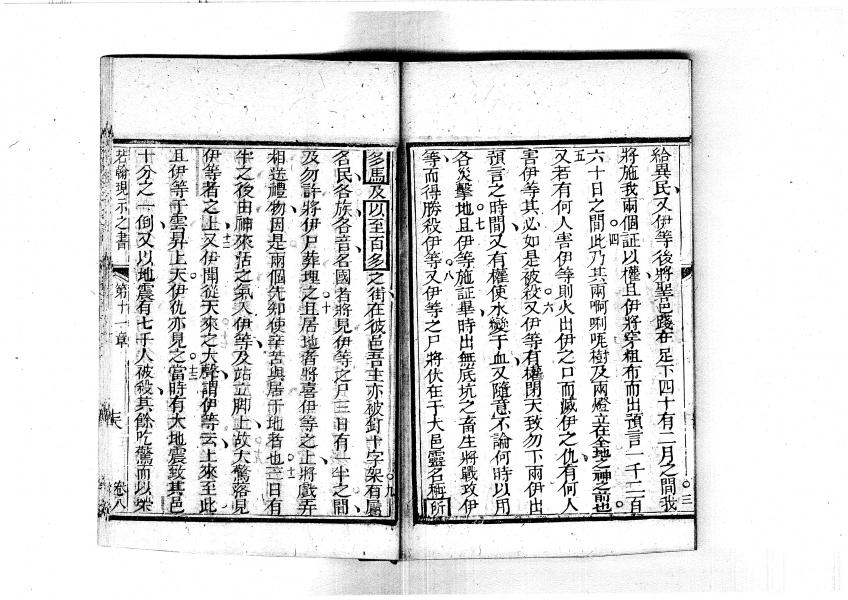 給異民又伊等後將聖邑踐在足下四十有二月之間我
將施我兩個証以權且伊將穿粗布而出預言一千二百
六十日之間此乃其兩啊唎㖿樹及兩燈立在全地之神前也
又若有何人害伊等則火出伊之口而滅伊之仇有何人
害伊等其必如是被殺又伊等有權閉天致勿下雨伊出
預言之時間又有權使水變于血又隨意不論何時以用
各災擊地且伊等施証畢時出無底坑之畜生將戰攻伊
等而得勝殺伊等又伊等之尸將伏在于大邑靈名稱所
多馬及以至百多之街在彼邑吾主亦被釘十字架有屬
名民各族各音名國者將見伊等之尸三日有一半之間
及勿許將伊尸葬埋之且居地者將喜伊等之上將戲弄
相送禮物因是兩個先知使辛苦與居于地者也三日有
半之後由神來活之氣入伊等及站立脚上故大驚落見
伊等者之上又伊聞從天來之大聲謂伊等云上來至此
且伊等于雲昇上天伊仇亦見之當時有大地震致其邑
十分之一倒又以地震有七千人被殺其餘吃驚而以榮
若翰現示之書 第十一章 卷八